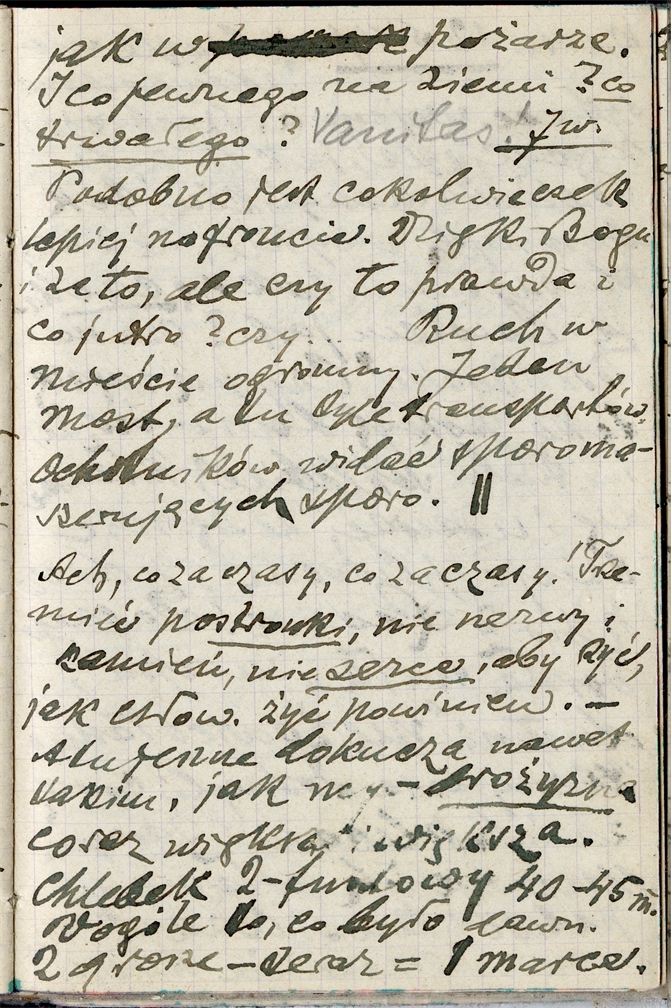 jak w pożarze.
I co pewnego na ziemi? co
trwałego? Vanitas! Jw.
Podobno jest cokolwieczek
lepiej na froncie. Dzięki Bogu
i za to, ale czy to prawda i
co jutro? czy... Ruch w
mieście ogromny. Jeden
most, a tu tyle transportów,
ochotników widać sporo ma-
szerujących sporo. ||
Ach, co za czasy, co za czasy! Trze-
mieć postronki, nie nerwy i
kamień, nie serce, aby żyć,
jak człow. żyć powinien. —
A tu jeszcze dokucza nawet
takim, jak my — drożyzna
coraz większa i większa.
Chlebek 2-funtowy 40-45 m.
Wogóle to, co było dawn.
2 grosze — teraz = 1 marce.